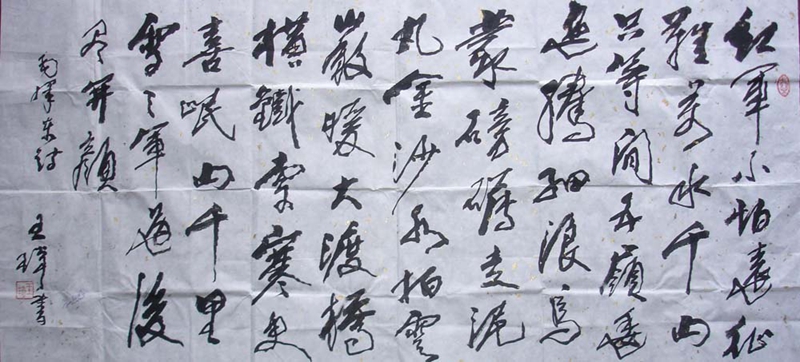 紅軍不怕遠征
難萬水千山
只等閒五嶺逶
迤騰細浪烏
蒙磅礴走泥
丸金沙水拍雲
巖暖大渡橋
橫鐵索寒更
喜岷山千里
雪三軍過後
盡開顏
毛澤東詩
王書